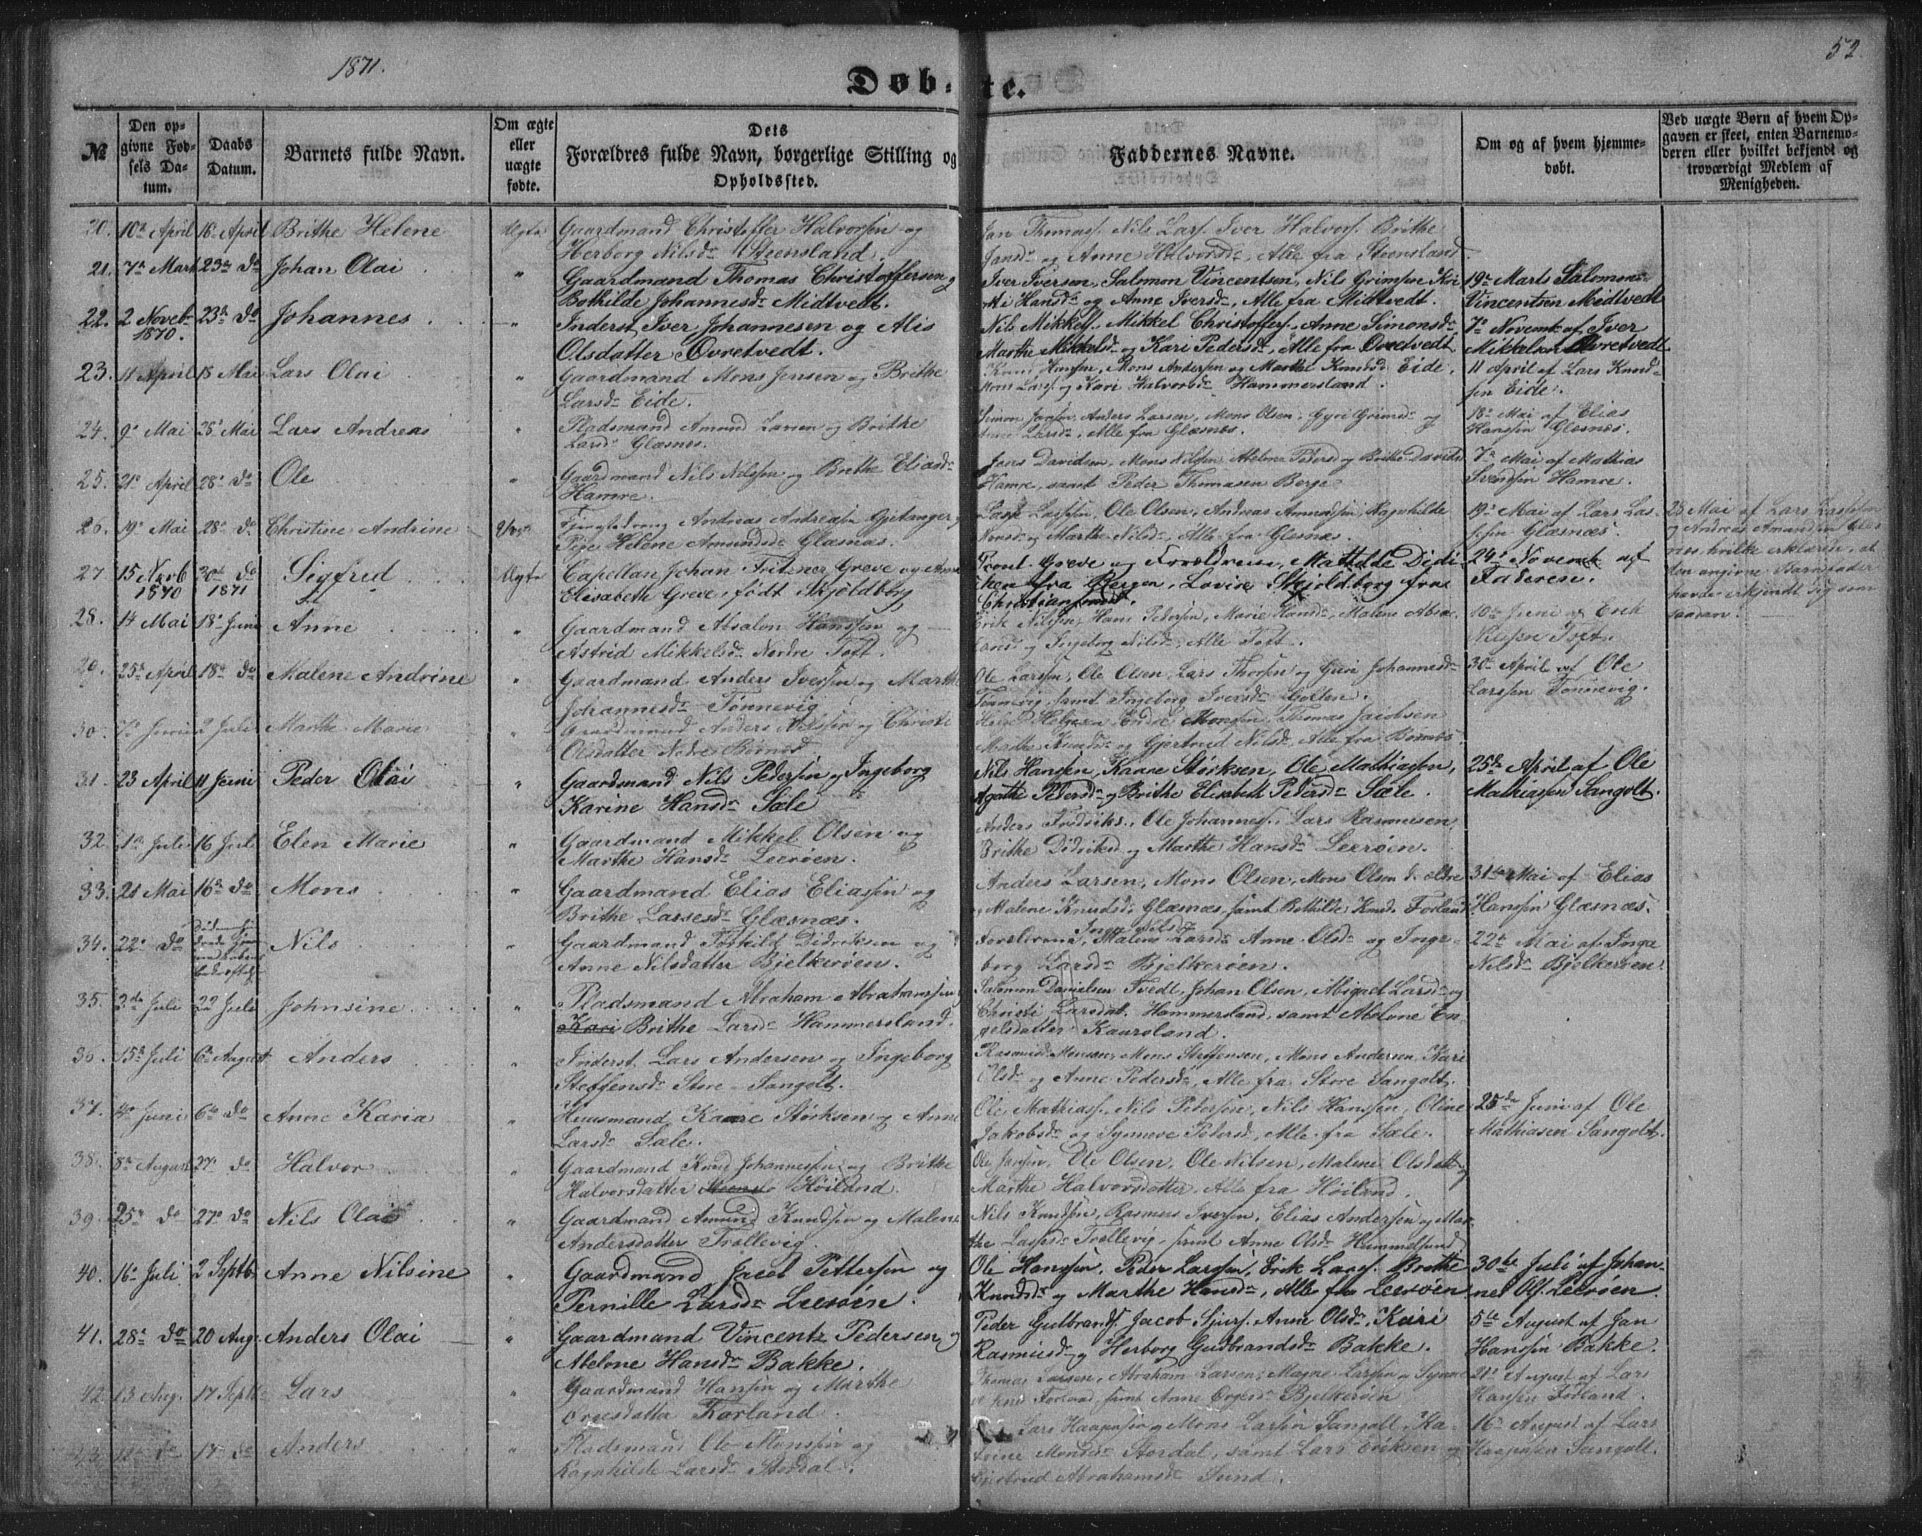 1871.
52
Døbte.
№
Den opgivne Fødsels Datum.
Daabs Datum.
Barnets fulde Navn.
Om ægte eller uægte fødte.
Dets Forældres fulde Navn, borgerlige Stilling og Opholdssted.
Faddernes Navne.
Om og af hvem hjemmedøbt.
Ved uægte Børn af hvem Opgaven er skeet, enten Barnemoderen eller hvilket bekjendt og troværdigt Medlem af Menigheden.
20. 10de April 16 April Brithe Helene Ægte Gaardmand Christoffer Halvorsen og
Herborg Nilsdr Steensland.
Jan Thomass. Nils Lars. Iver Halvors. Brithe
Jansdr og Anne Halvorsdr, Alle fra Steensland
21. 7de Mart 23de do Johan Olai " Gaardmand Thomas Christoffersen og
Bothilde Johannesdr Midtvedt.
Iver Iversen, Salomon Vincentsen, Nils Grimsen
Hansdr og Anne Iversdr, Alle fra Midtvedt.
19de Marts Salomon
Vincentsen Midtvedt
22. 2 Novebr 1870. 23de do Johannes " Inderst Iver Johannesen og Alis
Olsdatter Øvretvedt.
Nils Mikkels. Mikkel Christoffers. Anne Simonsdr
Marthe Mikkelsdr og Kari Pedersdr, Alle fra Øvretvedt
7de Novembr af Iver
Mikkelsen Øvretvedt
23. 11 April 18 Mai Lars Olai " Gaardmand Mons Jensen og Brithe
Larsdr Eide.
Knud Hansen, Mons Andersen og Marthe Knudsdr Eide.
Mons Lars. og Kari Halvorsdr Hammersland.
11 april af Lars Knudsen Eide.
24. 9de Mai 28de Mai Lars Andreas " Pladsmand Amund Larsen og Brithe
Larsdr Glæsnes.
Simon Jansen, Anders Larsen, Mons Olsen, Gyri Grimsdr og
Anne Larsdr, Alle fra Glæsnes.
18de Mai af Elias
Hanssen Glæsnes.
25. 21de April 28de do Ole " Gaardmand Nils Nilssen og Brithe Eliasdr
Hamre.
Jens Davidsen, Mons Nilsen, Abelone Pedersd og Brithe Davidsd
Hamre, samt Peder Thomasen Berge
7de Mai af Mathias
Svendsen Hamre.
26. 19de Mai 28de do Christine Andrine Uægte Ungkarl Andreas Andreasen Gjetanger og
Pige Helene Amundsdr Glæsnæs.
Lars Larssen, Ole Olsen, Andreas Amundsen, Ragnhilde
Monsd og Marthe Nilsd, Alle fra Glæsnes.
19de Mai af Lars Larssen Glæsnæs.
23 Mai af Lars Larssen
og Andreas Amundsen Glæsnes, hvilke erklærer, at
den angivne Barnefader
havde erkjendt sig som
saadan.
27. 15 Novb 1870 30de do 1871 Sigfred Ægte Capellan Johan Fritzner Greve og Anne
Elisabeth Greve, født Skjöldborg
Provst Greve og Forældrene, Mathilde Didiken fra Bergen, Lovise Skjöldborg fra
Christianssund.
24de Novembr af
Faderen.
28. 14 Mai 18de Juni Anne " Gaardmand Absalon Hanssen og
Astrid Mikkelsdr Nordre Toft.
Erik Nilssen, Hans Pedersen, Marie Knudsdr, Malene Absalonsd og Ingeborg Nilsd, Alle Toft.
10de Juni af Erik
Nilssen Toft.
29. 25de April 18de do Malene Andrine " Gaardmand Anders Iverssen og Marthe
Johannesdr Tønnevig
Ole Larssen, Ole Olsen, Lars Thorsen og Guri Johannesdr
Tønnevig, samt Ingeborg Iversdr Golten.
30de April af Ole
Larssen Tønnevig.
30. 7de Juni 2 Juli Marthe Marie " Gaardmand Anders Nilssen og Christi
Olsdatter Nedre Børnes
Marthe Knudsd og Gjertrud Nilsd, Alle fra Børnes.
31. 23 April 11 Juni Peder Olai " Gaardmand Nils Pedersen og Ingeborg
Karine Hansdr Sæle
Nils Hansen, Kaare Størksen, Ole Mathiasen,
Agathe Pedersdr og Brithe Elisabeth Pedersdr Sæle.
25de April af Ole
Mathiassen Sangolt.
32. 1de Juli 16 Juli Elen Marie " Gaardmand Mikkel Olsen og
Marthe Hansdr Leerøen.
Anders Fredriks., Ole Johanness. Lars Rasmusen,
Brithe Didriksd og Marthe Hansdr Leerøen.
33. 21 Mai 16de do Mons " Gaardmand Elias Eliassen og
Brithe Larsesdr Glæsnæs.
Anders Larsen, Mons Olsen, Mons Olsen d. eldre
og Malene Knudsd. Glæsnæs, samt Bothilde Knudsd Forland
31te Mai af Elias
Hanssen Glæsnæs.
34. 22de do Nils " Gaardmand Torkild Didriksen og
Anne Nilsdatter Bjelkerøen.
Forældrene, Inga Nilsd Malene Larsd Anne Olsdr og Ingeborg Larsdr Bjelkerøen.
22de Mai af Inga
Nilsdr Bjelkerøen.
35. 3de Juli 22 Juli Johnsine " Pladsmand Abraham Abrahamsen og
Kari Brithe Larsdr Hammersland.
Salomon Danielsen Tvedt, Johan Olsen, Abigael Larsdr og
Christi Larsdat. Hammersland, samt Abelone Engelsdatter Kaursland.
36. 15de Juli 6te August Anders " Inderst Lars Andersen og Ingeborg
Steffensdr Store-Sangolt.
Rasmus Monsen, Mons Steffensen, Mons Andersen, Kari
Olsd og Anne Pedersdr, Alle fra Store Sangolt.
37. 4de Juni 6te do Anne Karia " Huusmand Kaare Størksen og Anne
Larsdr Sæle.
Ole Mathiass. Nils Pedersen, Nils Hanssen, Oline
Jakobsdr og Synneve Pedersd, Alle fra Sæle.
25de Juni af Ole
Mathiasen Sangolt.
38. 8de August 27de do Halvor " Gaardmand Knud Johannessen og Brithe
Halvorsdatter Høiland.
Ole Jansen, Ole Olsen, Ole Nilsen, Malene Olsdatt. og
Marthe Halvorsdatter, Alle fra Høiland.
39. 25de do 27de do Nils Olai " Gaardmand Amund Knudssen og Malene
Andersdatter Trællevig
Nils Knudsen, Rasmus Iversen, Elias Andersen og Marthe Larsd. Trællevig, samt Anne Olsdr Hummelsund.
40. 16de Juli 2 Septb. Anne Nilsine " Gaardmand Jacob Pettersen og
Pernille Larsdr Leerøen.
Ole Hanssen, Peder Larssen, Erik Larss. Brithe
Knudsdr og Marthe Hansdr, Alle fra Leerøen
30te Juli af Johannes Ols. Leerøen.
41. 28de do 20 Aug. Anders Olai " Gaardmand Vincentz Pedersen og
Abelone Hansdr Bakke.
Peder Gulbrands. Jacob Sjurs. Anne Olsdr, Kari
Rasmusdr og Herborg Gudbrandsdr Bakke.
5te August af Jan
Hanssen Bakke.
42. 13 Aug. 17 Septb Lars " Gaardmand Hansen og Marthe
Forland.
Thomas Larsen, Abraham Larsen, Magne Larssen
Forland, samt Anne Bjelkerøen
21de August af Lars
Hanssen Forland.
43. do 17de do Anders " Pladsmand Ole Monssen og
Ragnhilde Larsdr Stordal.
Lars Haagensen og Mons Larsen Sangolt, Katrine Monsdr Stordal, samt Lars Eriksen og
Gjertrud Abrahamsdr Sund.
16de August af Lars
Haagensen Sangolt.